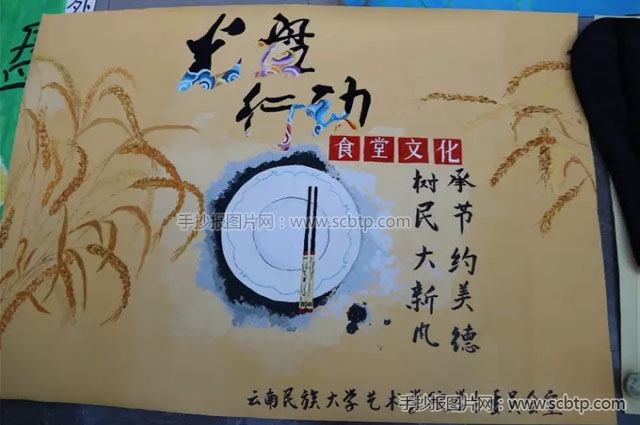 外
光盘
行动
食堂文化
承节约美德
树民大新风
手抄报图片网：www.scbtp.com
云南民族大学艺术
手抄报图片网：www.scbtp.com